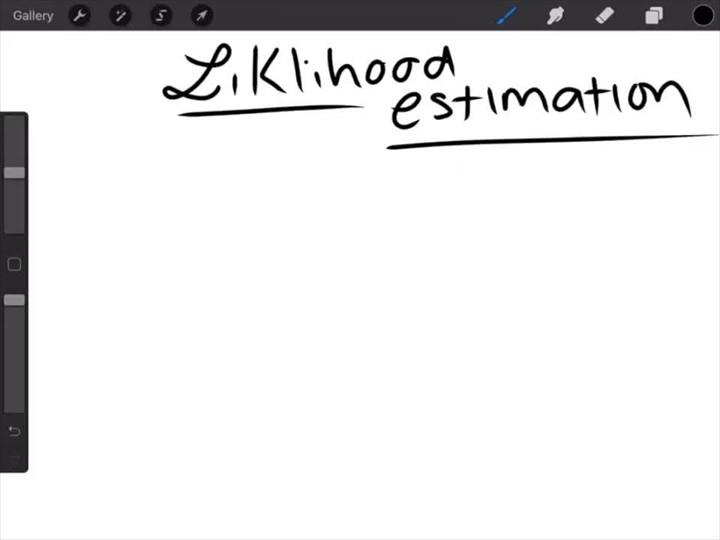 Gallery
Liklihood
estimation